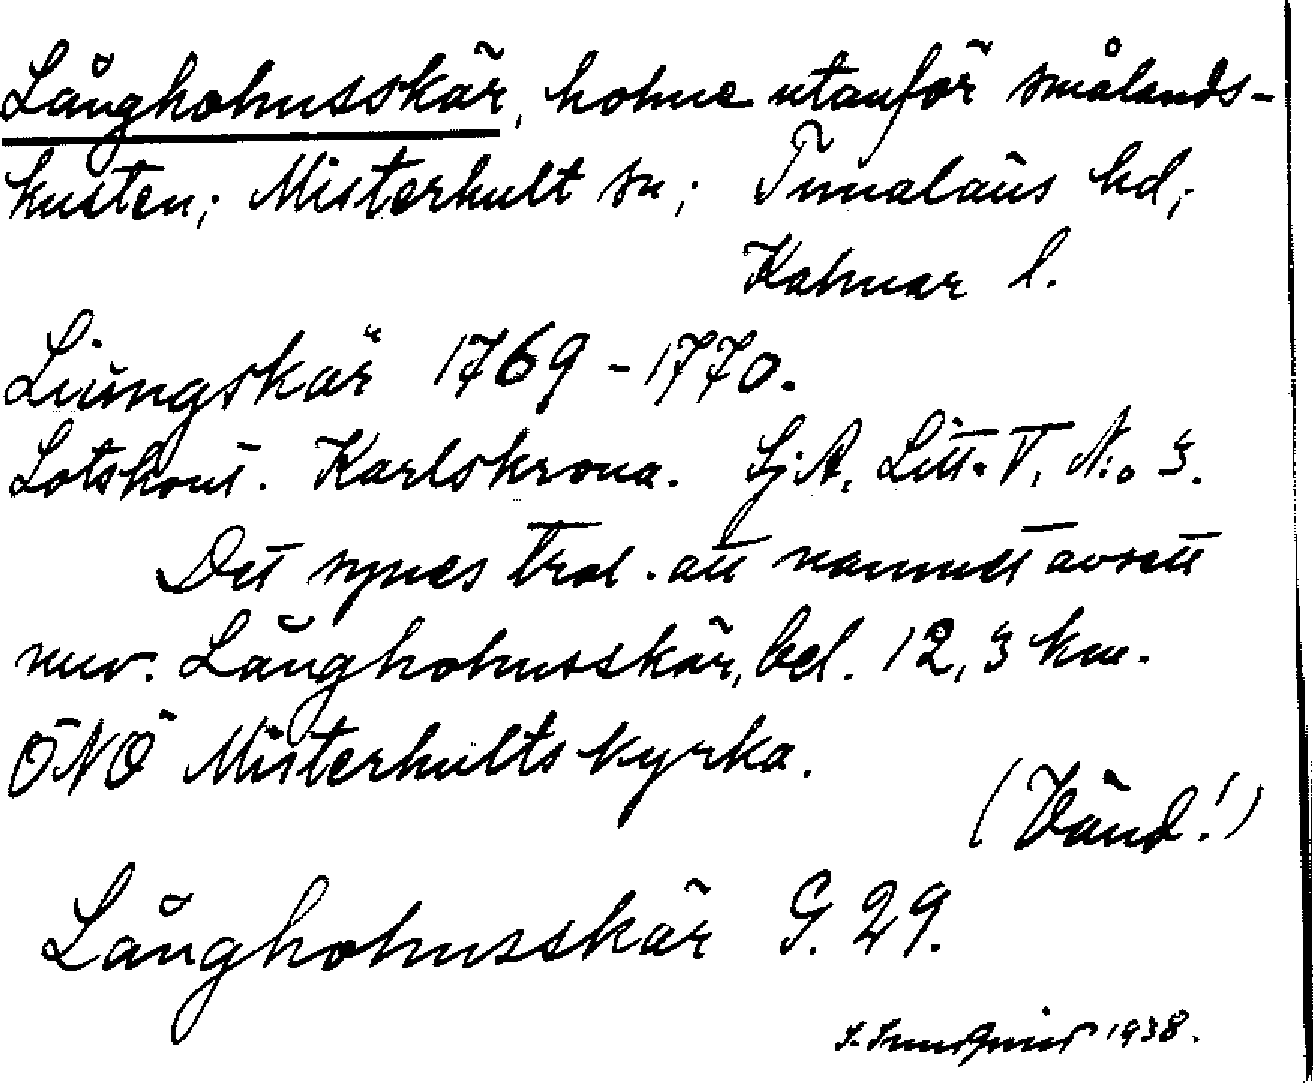 Långholmsskär, holme utanför smålands-
kusten; Misterhult sn; Tunaläns hd;
Kalmar l.
Liungskär 1769-1770.
Lotskont. Karlskrona. Sj.A. Litt. T. N:o 3.
Det synes trol. att namnet avsett
nuv. Långholmsskär, bel. 12,3 km.
ÖNÖ Misterhults kyrka.
(Vänd!)
Långholmsskär G. 29.
1938.